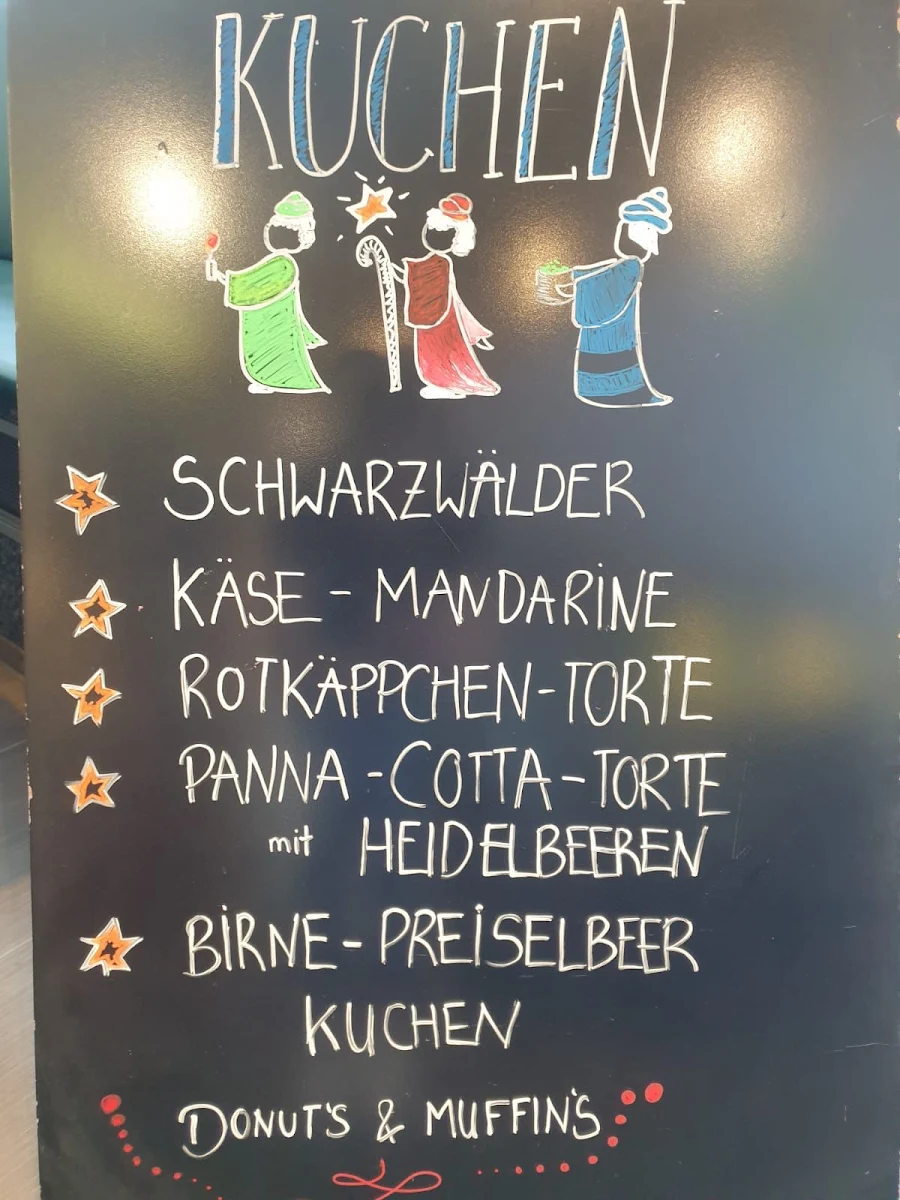 KUCHEN
SCHWARZWÄLDER
KÄSE - MANDARINE
ROTKÄPPCHEN-TORTE
PANNA - COTTA - TORTE
mit HEIDELBEEREN
BIRNE - PREISELBEER
KUCHEN
DONUT'S & MUFFIN'S